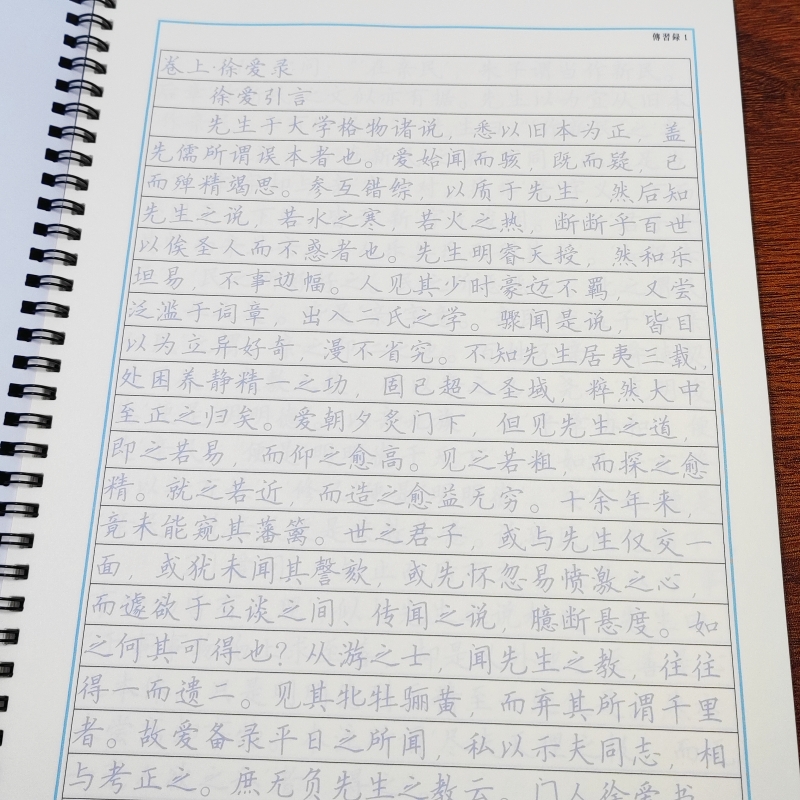 傳習録 1
卷上·徐爱录
徐爱引言
先生于大学格物诸说，悉以旧本为正，盖
先儒所谓误本者也。爱始闻而骇，既而疑，已
而殚精竭思。参互错综，以质于先生，然后知
先生之说，若水之寒，若火之热，断断乎百世
以俟圣人而不惑者也。先生明睿天授，然和乐
坦易，不事边幅。人见其少时豪迈不羁，又尝
泛滥于词章，出入二氏之学。骤闻是说，皆目
以为立异好奇，漫不省究。不知先生居夷三载，
处困养静精一之功，固已超入圣域，粹然大中
至正之归矣。爱朝夕炙门下，但见先生之道，
即之若易，而仰之愈高。见之若粗，而探之愈
精。就之若近，而造之愈益无穷。十余年来，
竟未能窥其藩篱。世之君子，或与先生仅交一
面，或犹未闻其謦欬，或先怀忽易愤激之心，
而遽欲于立谈之间、传闻之说，臆断悬度。如
之何其可得也？从游之士，闻先生之教，往往
得一而遗二。见其牝牡骊黄，而弃其所谓千里
者。故爱备录平日之所闻，私以示夫同志，相
与考正之。庶无负先生之教云。门人徐爱书